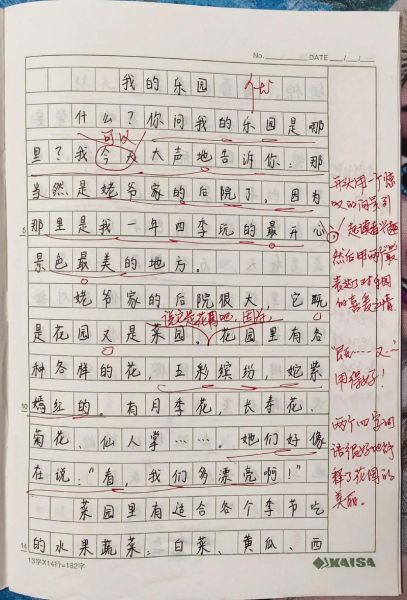 No.
DATE / /
我的乐园
优
什么？你问我的乐园是哪
可以
里？我今天大声地告诉你：那
当然是姥爷家的后院了，因为
那里是我一年四季玩的最开心
景色最美的地方。
姥爷家的后院很大，它既
说它是花园吧，因为
是花园又是菜园。花园里有各
种各样的花，五彩缤纷，姹紫
嫣红的。有月季花，长寿花，
菊花，仙人掌……。她们好像
在说："看，我们多漂亮啊！"
菜园里有适合各个季节吃
的水果蔬菜：白菜、黄瓜、西
5
10
14
13字X14行=182字
KAISA
开头用一个惊
叹的问号引
起读者兴趣
然后用两个最
表达了对乐园
的喜爱之情。
"既……又…"
用得好！
两个四字词
语很好地诠
释了花园的
美丽。